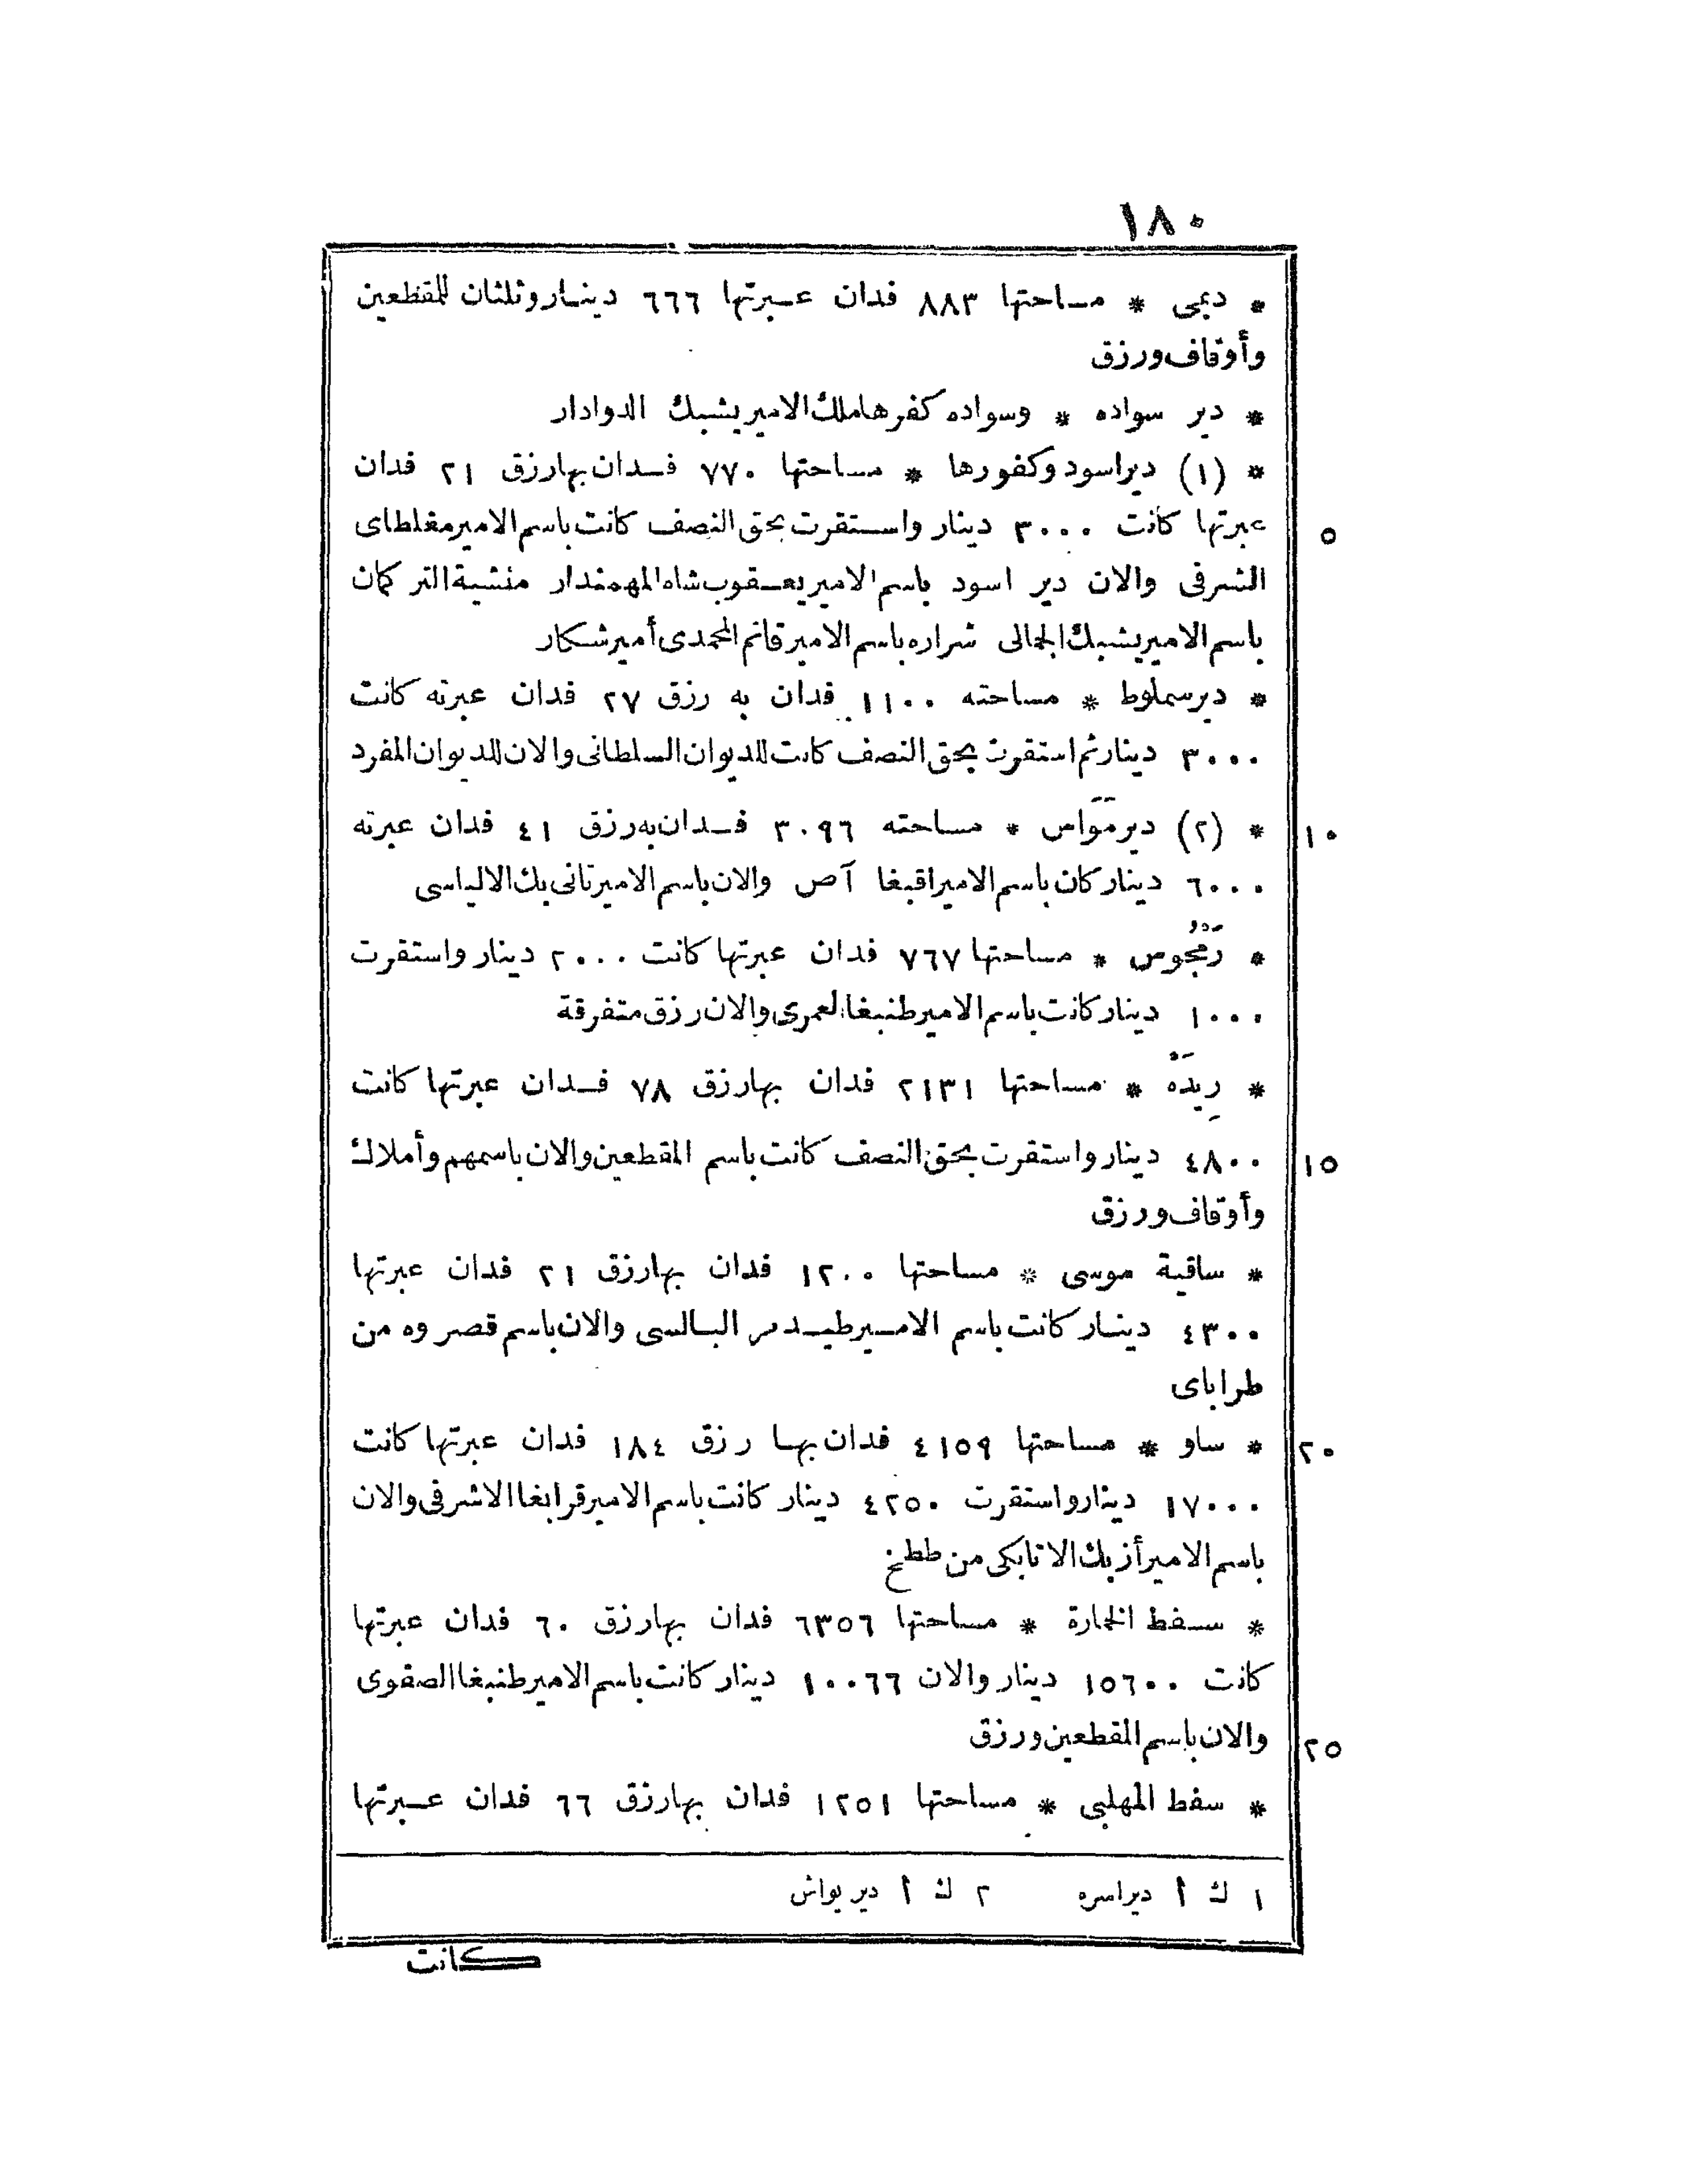 ١٨٠
* ديمى * مساحتها ٨٨٣ فدان عبرتها ٦٦٦ دينار وثلثان للمقطعين
وأوقاف ورزق
* دير سواده * وسواده كفرها ملك الامير يشبك الدوادار
* (١) دير اسود وكفورها * مساحتها ٧٧٠ فدان بها رزق ٢١ فدان
٥ عبرتها كانت ٣٠٠٠ دينار واستقرت بحق النصف كانت باسم الامير مغلطاى
الشرفى والان دير اسود باسم الامير يعقوب شاه المهمندار منشية التركمان
باسم الامير يشبك الجمالى شراره باسم الامير قانم المحمدى أمير شكار
* دير سملوط * مساحته ١١٠٠ فدان به رزق ٢٧ فدان عبرته كانت
٣٠٠٠ دينار ثم استقرت بحق النصف كانت للديوان السلطانى والان للديوان المفرد
١٠ * (٢) دير مَوَاس * مساحته ٣٠٩٦ فدان به رزق ٤١ فدان عبرته
٦٠٠٠ دينار كان باسم الامير اقبغا آص والان باسم الامير تانى بك الالياسى
* رَمْجُوس * مساحتها ٧٦٧ فدان عبرتها كانت ٢٠٠٠ دينار واستقرت
١٠٠٠ دينار كانت باسم الامير طنبغا العمرى والان رزق متفرقة
* رِيدَه * مساحتها ٢١٣١ فدان بها رزق ٧٨ فدان عبرتها كانت
١٥ ٤٨٠٠ دينار واستقرت بحق النصف كانت باسم المقطعين والان باسمهم وأملاك
وأوقاف ورزق
* ساقية موسى * مساحتها ١٢٠٠ فدان بها رزق ٢١ فدان عبرتها
٤٣٠٠ دينار كانت باسم الامير طيدمر البالسى والان باسم قصروه من
طراباى
٢٠ * ساو * مساحتها ٤١٥٩ فدان بها رزق ١٨٤ فدان عبرتها كانت
١٧٠٠٠ دينار واستقرت ٤٢٥٠ دينار كانت باسم الامير قرابغا الاشرفى والان
باسم الامير أزبك الاتابكى من ططخ
* سفط الخمارة * مساحتها ٦٣٥٦ فدان بها رزق ٦٠ فدان عبرتها
كانت ١٥٦٠٠ دينار والان ١٠٠٦٦ دينار كانت باسم الامير طنبغا الصفوى
٢٥ والان باسم المقطعين ورزق
* سفط المهلبى * مساحتها ١٢٥١ فدان بها رزق ٦٦ فدان عبرتها
١ ك أ دير اسره ٢ ك أ دير بواش
كانت